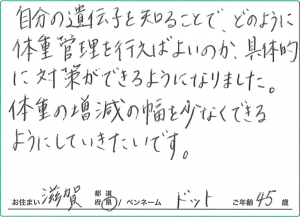 自分の遺伝子を知ることで、どのように
体重管理を行えばよいのか、具体的
に対策ができるようになりました。
体重の増減の幅を少なくできる
ようにしていきたいです。
お住まい 滋賀 都道府県 / ペンネーム ドット ご年齢 45 歳